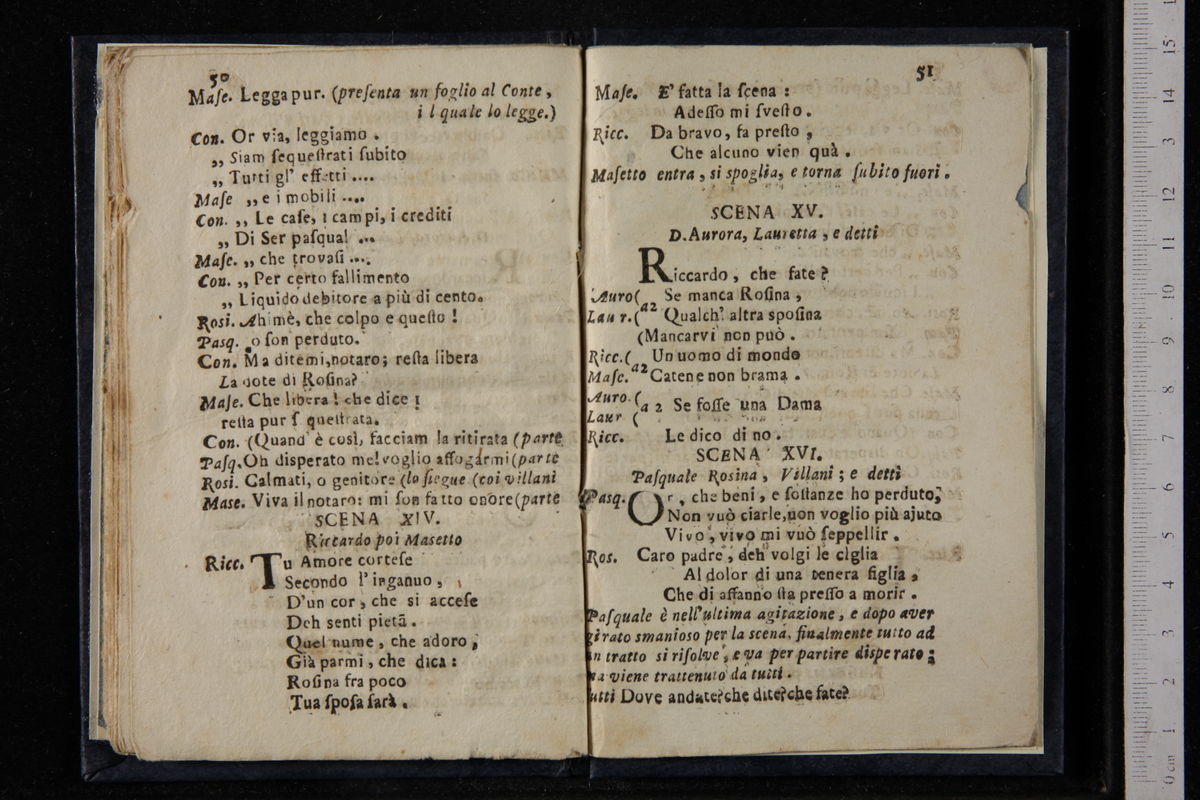 50
Maſe. Legga pur. (preſenta un foglio al Conte,
i l quale lo legge.)
Con. Or via, leggiamo.
„ Siam ſequeſtrati ſubito
„ Tutti gl' effetti ....
Maſe „ e i mobili ....
Con. „ Le caſe, i campi, i crediti
„ Di Ser paſqual ...
Maſe. „ che trovaſi ....
Con. „ Per certo fallimento
„ Liquido debitore a più di cento.
Roſi. Ahimè, che colpo e queſto !
Pasq. o ſon perduto.
Con. Ma ditemi, notaro; reſta libera
La dote di Roſina?
Maſe. Che libera ! che dice !
reſta pur ſ queſtrata.
Con. (Quand' è così, facciam la ritirata (parte
Paſq. Oh disperato me! voglio affogarmi (parte
Roſi. Calmati, o genitore (lo ſiegue (coi villani
Mase. Viva il notaro: mi ſon fatto onore (parte
SCENA XIV.
Riccardo poi Masetto
Ricc. Tu Amore corteſe
Secondo l'inganuo,
D'un cor, che si acceſe
Deh senti pietà.
Quel nume, che adoro;
Già parmi, che dica:
Roſina fra poco
Tua ſpoſa ſarà.
51
Maſe. E' fatta la ſcena :
Adeſſo mi ſveſto.
Ricc. Da bravo, fa preſto,
Che alcuno vien quà.
Maſetto entra, si spoglia, e torna ſubito fuori.
SCENA XV.
D. Aurora, Lauretta, e detti
Riccardo, che fate?
Auro( a2 Se manca Roſina,
Laur.( Qualch' altra spoſina
(Mancarvi non può.
Ricc.( Un uomo di mondo
Maſc. a2 Catene non brama.
Auro.( a 2 Se foſſe una Dama
Laur (
Ricc. Le dico di no.
SCENA XVI.
Paſquale Rosina, Villani; e detti
Pasq. Or, che beni, e ſoſtanze ho perduto,
Non vuò ciarle, non voglio più ajuto
Vivo, vivo mi vuò ſeppellir.
Ros. Caro padre, deh volgi le ciglia
Al dolor di una tenera figlia,
Che di affanno ſta preſſo a morir.
Paſquale è nell'ultima agitazione, e dopo aver
girato smanioso per la scena, finalmente tutto ad
un tratto si riſolve, e va per partire disperato;
ma viene trattenuto da tutti.
utti Dove andate? che dite? che fate?